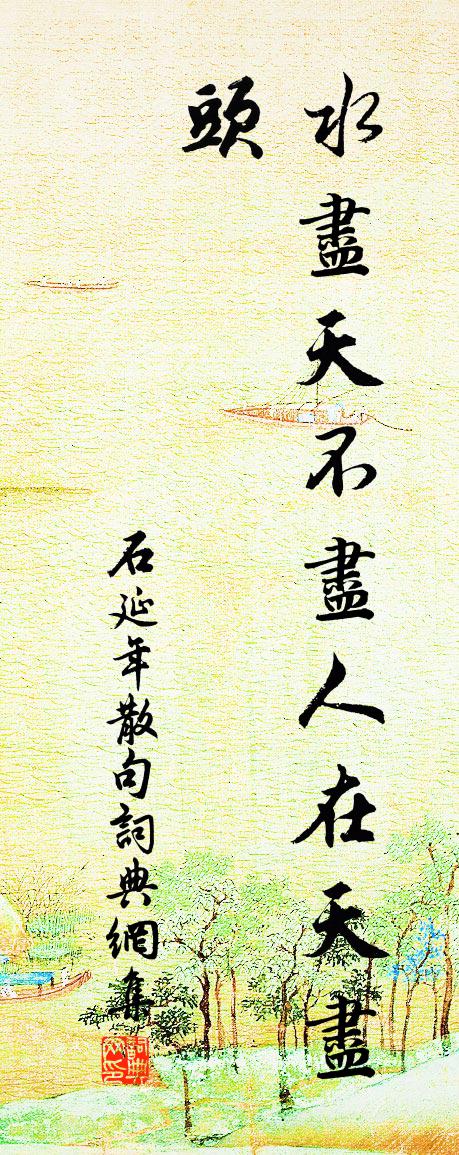 水盡天不盡人在天盡
頭
石延年散句詞典網集